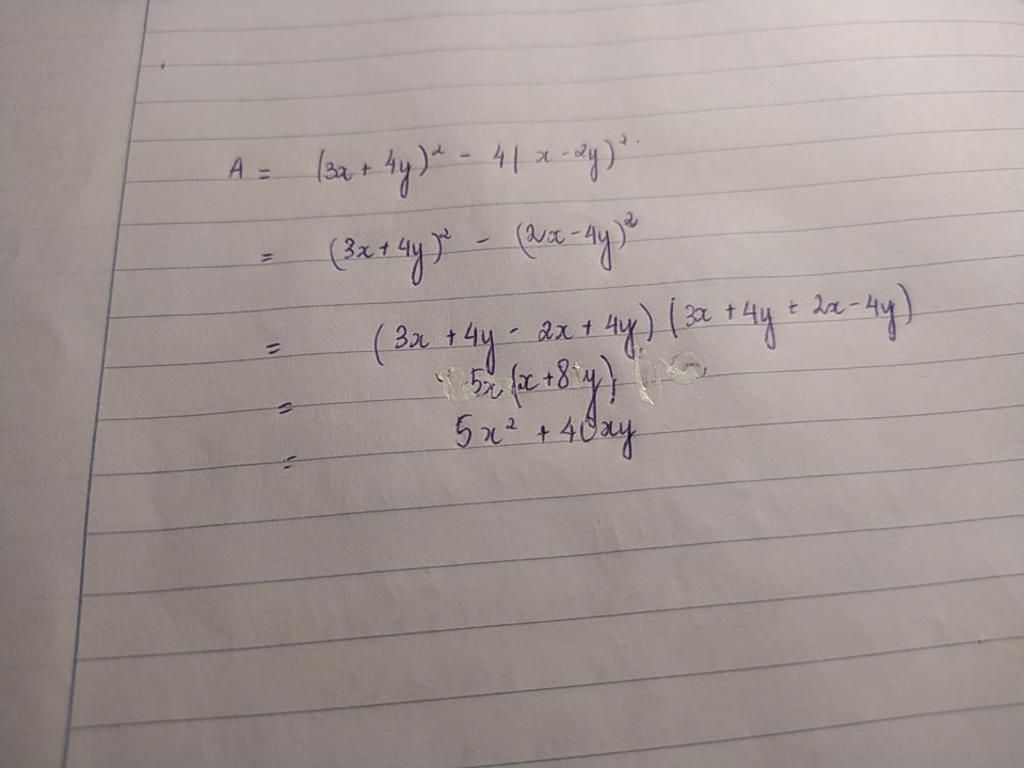 A = (3x + 4y)² - 4( x - 2y)².
= (3x + 4y)² - (2x - 4y)²
= (3x + 4y - 2x + 4y) (3x + 4y + 2x - 4y)
= 5x (x + 8y)
= 5x² + 40xy